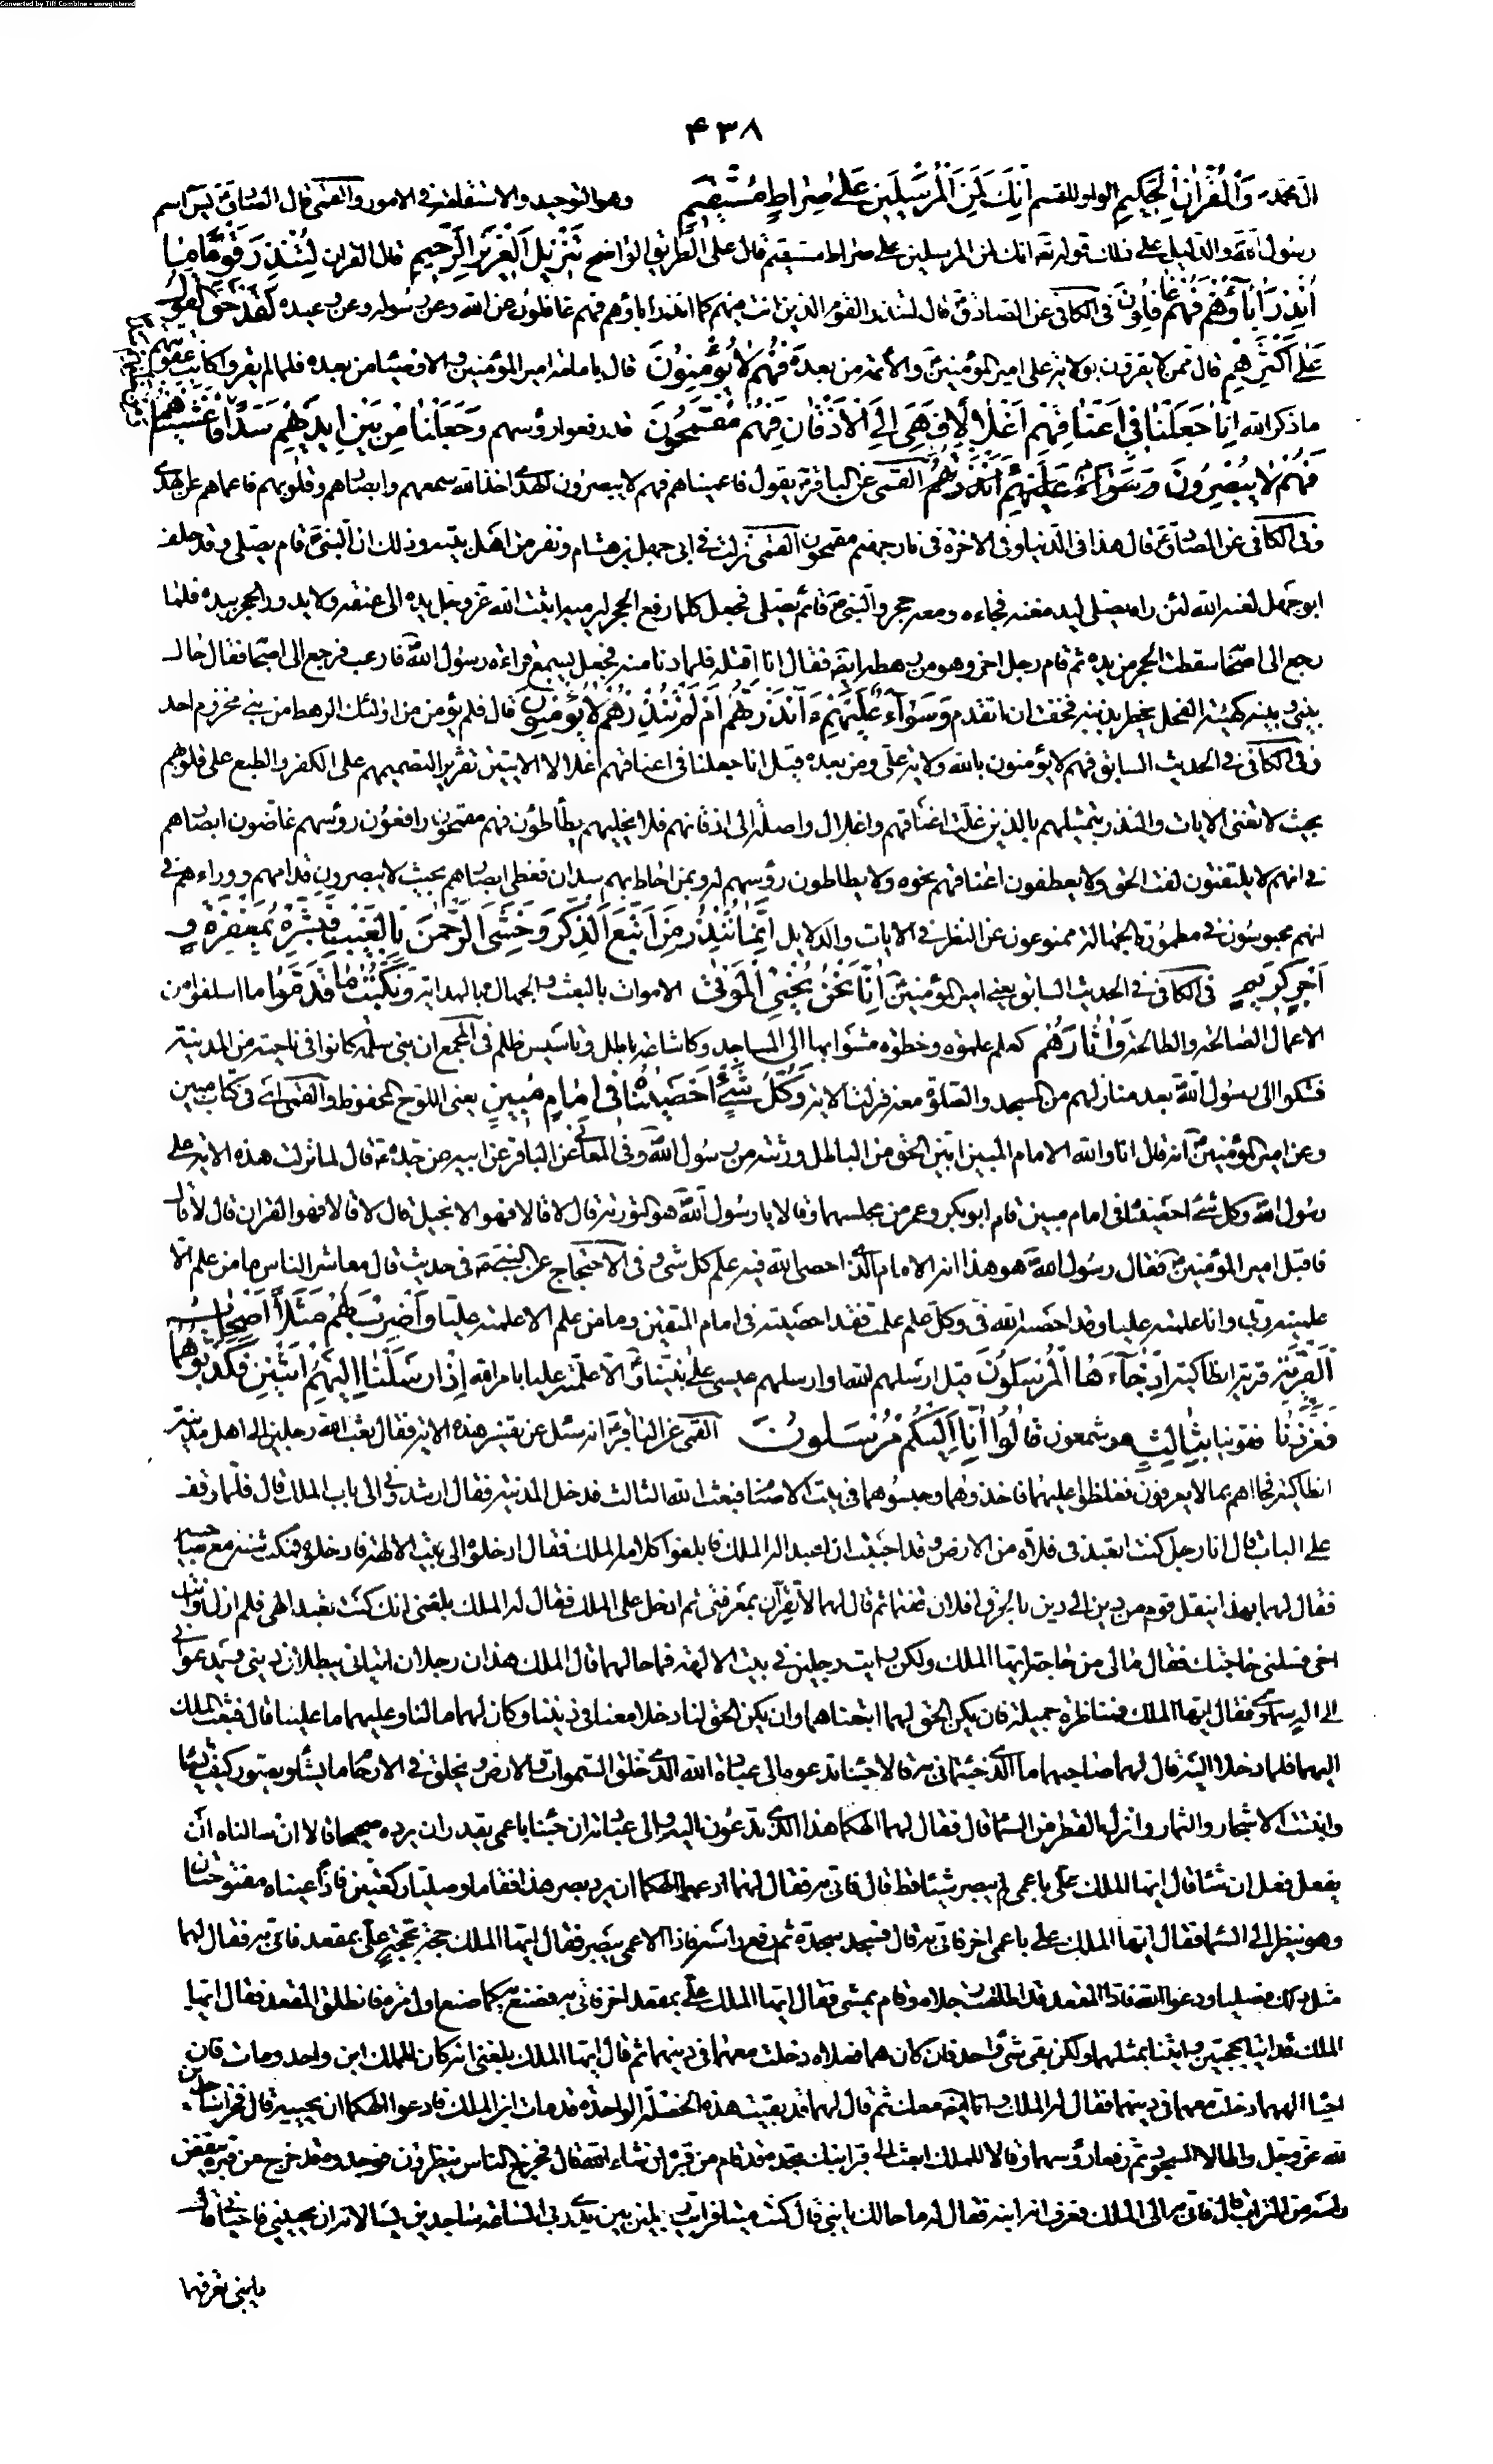 Converted by Tiff Combine - unregistered
۴۳۸
ال محمد وَالْقُرْانِ الْحَكِيمِ الواو للقسم اِنَّكَ لَمِنَ الْمُرْسَلِينَ عَلىٰ صِرٰاطٍ مُسْتَقِيمٍ وهو التوحيد والاستقامة في الامور والقمى قال الصادق يس اسم
رسول الله والدليل على ذلك قوله تعه انك لمن المرسلين على صراط مستقيم قال على الطريق الواضح تَنْزِيلَ الْعَزِيزِ الرَّحِيمِ قال القران لِتُنْذِرَ قَوْمًا مٰا
اُنْذِرَ اٰبٰاؤُهُمْ فَهُمْ غٰافِلُونَ في الكافي عن الصادق قال لتنذر القوم الذين انت فيهم كما انذر اباؤهم فهم غافلون عن الله وعن رسوله وعن وعيده لَقَدْ حَقَّ الْقَوْلُ
عَلىٰ اَكْثَرِهِمْ قال ممن لا يقرون بولاية على امير المؤمنين والأئمة من بعده فَهُمْ لٰا يُؤْمِنُونَ قال بامامة امير المؤمنين والاوصياء من بعده فلما لم يقروا كانت عقوبتهم
ما ذكر الله اِنّٰا جَعَلْنٰا فِى اَعْنٰاقِهِمْ اَغْلٰالًا فَهِىَ اِلَى الْاَذْقٰانِ فَهُمْ مُقْمَحُونَ قد رفعوا رؤسهم وَجَعَلْنٰا مِنْ بَيْنِ اَيْدِيهِمْ سَدًّا فَاَغْشَيْنٰاهُمْ
فَهُمْ لٰا يُبْصِرُونَ وَسَوٰاءٌ عَلَيْهِمْ ءَاَنْذَرْتَهُمْ القمى عن الباقر يقول فاعميناهم فهم لا يبصرون الهدى اخذ الله سمعهم وابصارهم وقلوبهم فاعماهم عن الهدى
وفي الكافي عن الصادق قال هذا في الدنيا وفي الاخرة في نار جهنم مقمحون القمى نزلت في ابى جهل بن هشام ونفر من اهل بيته وذلك ان النبى قام يصلى وقد حلف
ابو جهل لعنه الله لئن راه يصلى ليدمغنه فجاءه ومعه حجر والنبى قائم يصلى فجعل كلما رفع الحجر ليرميه اثبت الله عز وجل يده الى عنقه ولا يدور الحجر بيده فلما
رجع الى اصحابه سقط الحجر من يده ثم قام رجل اخر وهو من رهطه ايضا فقال انا اقتله فلما دنا منه فجعل يسمع قراءة رسول الله فارعب فرجع الى اصحابه فقال حال
بينى وبينه كهيئة الفحل يخطر بذنبه فخفت ان اتقدم وَسَوٰاءٌ عَلَيْهِمْ ءَاَنْذَرْتَهُمْ اَمْ لَمْ تُنْذِرْهُمْ لٰا يُؤْمِنُونَ قال فلم يؤمن من اولئك الرهط من بنى مخزوم احد
وفى الكافي في الحديث السابق فهم لا يؤمنون بالله ولاية على ومن بعده قيل انا جعلنا في اعناقهم اغلالا الايتين تقرير لتصميمهم على الكفر والطبع على قلوبهم
بحيث لا تغنى الايات والنذر بتمثيلهم بالذين غلت اعناقهم واغلال واصلة الى اذقانهم فلا تخليهم يطأطئون فهم مقمحون رافعون رؤسهم غاضون ابصارهم
في انهم لا يلتفتون لفت الحق ولا يعطفون اعناقهم نحوه ولا يطاطون رؤسهم له وبمن احاط بهم سدان فغطى ابصارهم بحيث لا يبصرون قدامهم ووراءهم في
انهم محبوسون في مطمورة الجهالة ممنوعون عن النظر في الايات والدلايل اِنَّمٰا تُنْذِرُ مَنِ اتَّبَعَ الذِّكْرَ وَخَشِىَ الرَّحْمٰنَ بِالْغَيْبِ فَبَشِّرْهُ بِمَغْفِرَةٍ وَ
اَجْرٍ كَرِيمٍ في الكافي في الحديث السابق يعنى امير المؤمنين اِنّٰا نَحْنُ نُحْىِ الْمَوْتىٰ الاموات بالبعث والجهال بالهداية وَنَكْتُبُ مٰا قَدَّمُوا ما اسلفوا من
الاعمال الصالحة والطالحة وَاٰثٰارَهُمْ كعلم علموه وخطوة مشوا بها الى المساجد وكاشاعة باطل وتاسيس ظلم في المجمع ان بنى سلمة كانوا في ناحية من المدينة
فشكوا الى رسول الله بعد منازلهم من المسجد والصلوة معه فنزلت الاية وَكُلَّ شَىْءٍ اَحْصَيْنٰاهُ فِى اِمٰامٍ مُبِينٍ يعنى اللوح المحفوظ والقمى اى في كتاب مبين
وعن امير المؤمنين انه قال انا والله الامام المبين ابين الحق من الباطل ورثته من رسول الله وفى المعانى عن الباقر عن ابيه عن جده قال لما نزلت هذه الاية على
رسول الله وكل شئ احصيناه في امام مبين قام ابو بكر وعمر من مجلسهما وقالا يا رسول الله هو التورية قال لا قالا فهو الانجيل قال لا قالا فهو القران قال لا قال
فاقبل امير المؤمنين فقال رسول الله هو هذا انه الامام الذى احصى الله فيه علم كل شئ وفى الاحتجاج عن النبى في حديث قال معاشر الناس ما من علم الا
علمنيه ربى وانا علمته عليا وقد احصاه الله فى وكل علم علمت فقد احصيته في امام المتقين وما من علم الا علمته عليا وَاضْرِبْ لَهُمْ مَثَلًا اَصْحٰابَ
الْقَرْيَةِ قرية انطاكية اِذْ جٰاءَهَا الْمُرْسَلُونَ قيل ارسلهم الله او ارسلهم عيسى على نبينا و الا علمته عليا بامر الله اِذْ اَرْسَلْنٰا اِلَيْهِمُ اثْنَيْنِ فَكَذَّبُوهُمٰا
فَعَزَّزْنٰا فقوينا بِثٰالِثٍ هو شمعون فَقٰالُوا اِنّٰا اِلَيْكُمْ مُرْسَلُونَ القمى عن الباقر انه سئل عن تفسير هذه الاية فقال بعث الله رجلين الى اهل مدينة
انطاكية فجاءاهم بما لا يعرفون فغلظوا عليهما فاخذوهما وحبسوهما في بيت الاصنام فبعث الله الثالث فدخل المدينة فقال ارشدونى الى باب الملك قال فلما وقف
على الباب قال انا رجل كنت اتعبد في فلاة من الارض وقد احببت ان اعبد اله الملك فابلغوا كلامه الملك فقال ادخلوه الى بيت الالهة فادخلوه فمكث سنة مع صاحبيه
فقال لهما بهذا ينقل قوم من دين الى دين بالخرق افلا رفقتما ثم قال لهما لا تقران بمعرفتى ثم ادخل على الملك فقال له الملك بلغنى انك كنت تعبد الهى فلم ازل وانت
اخى فسلنى حاجتك فقال مالى من حاجة ايها الملك ولكن رايت رجلين في بيت الالهة فما حالهما قال الملك هذان رجلان اتيانى يبطلان دينى ويدعوانى
الى اله سماوى فقال ايها الملك فمناظرة جميلة فان يكن الحق لهما اتبعناهما وان يكن الحق لنا دخلا معنا في ديننا وكان لهما مالنا وعليهما ما علينا قال فبعث الملك
اليهما فلما دخلا اليه قال لهما صاحبهما ما الذى جئتمانى به قالا جئنا ندعوه الى عبادة الله الذى خلق السموات والارض ويخلق في الارحام ما يشاء ويصور كيف يشاء
وانبت الاشجار والثمار وانزل القطر من السماء قال فقال لهما الهكما هذا الذى تدعون اليه والى عبادته ان جئنا باعمى يقدر ان يرده صحيحا قالا ان سالناه ان
يفعل فعل ان شاء قال ايها الملك على باعمى لم يبصر شيئا قط قال فاتى به فقال لهما ادعوا الهكما ان يرد بصر هذا فقاما وصليا ركعتين فاذا عيناه مفتوحتان
وهو ينظر الى السماء فقال ايها الملك على باعمى اخر فاتى به قال فسجد سجدة ثم رفع راسه فاذا الاعمى يبصر فقال ايها الملك حجة بحجة على بمقعد فاتى به فقال لهما
مثل ذلك فصليا ودعوا الله فاذا المقعد قد اطلقت رجلاه وقام يمشى فقال ايها الملك على بمقعد اخر فاتى به فصنع به كما صنع اول مرة فانطلق المقعد فقال ايها
الملك قد اتيا بحجتين واتينا بمثلهما ولكن بقى شئ واحد فان كان هما فعلاه دخلت معهما في دينهما ثم قال ايها الملك بلغنى انه كان للملك ابن واحد ومات فان
احياه الههما دخلت معهما في دينهما فقال له الملك وانا ايضا معك ثم قال لهما قد بقيت هذه الخصلة الواحدة قد مات ابن الملك فادعوا الهكما ان يحييه قال فخرا ساجدين
لله عز وجل واطالا السجود ثم رفعا رؤسهما وقالا للملك ابعث الى قبر ابنك تجده قد قام من قبره ان شاء الله قال فخرج الناس ينظرون فوجدوه قد خرج من قبره ينفض
راسه من التراب قال فاتى به الى الملك فعرف انه ابنه فقال له ما حالك يا بنى قال كنت ميتا فرايت رجلين بين يدى ربى الساعة ساجدين يسالانه ان يحيينى فاحيانى قال
يا بنى تعرفهما